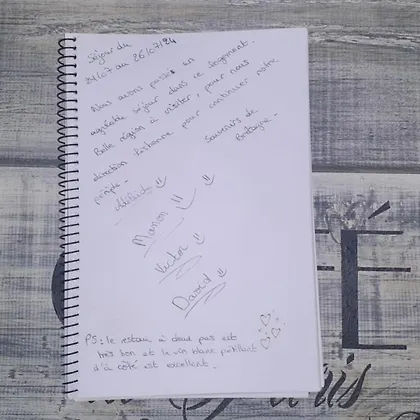 Séjour du
24/07 au 26/07/24
Nous avons passés un
agréable séjour dans ce logement.
Belle région à visiter, pour nous
direction Lisbonne pour continuer notre
périple.
Souvenirs de
Bretagne.
Manon
Victor
David
PS: le restau à deux pas est
très bon et le vin blanc pétillant
d'à côté est excellent.
FÉ